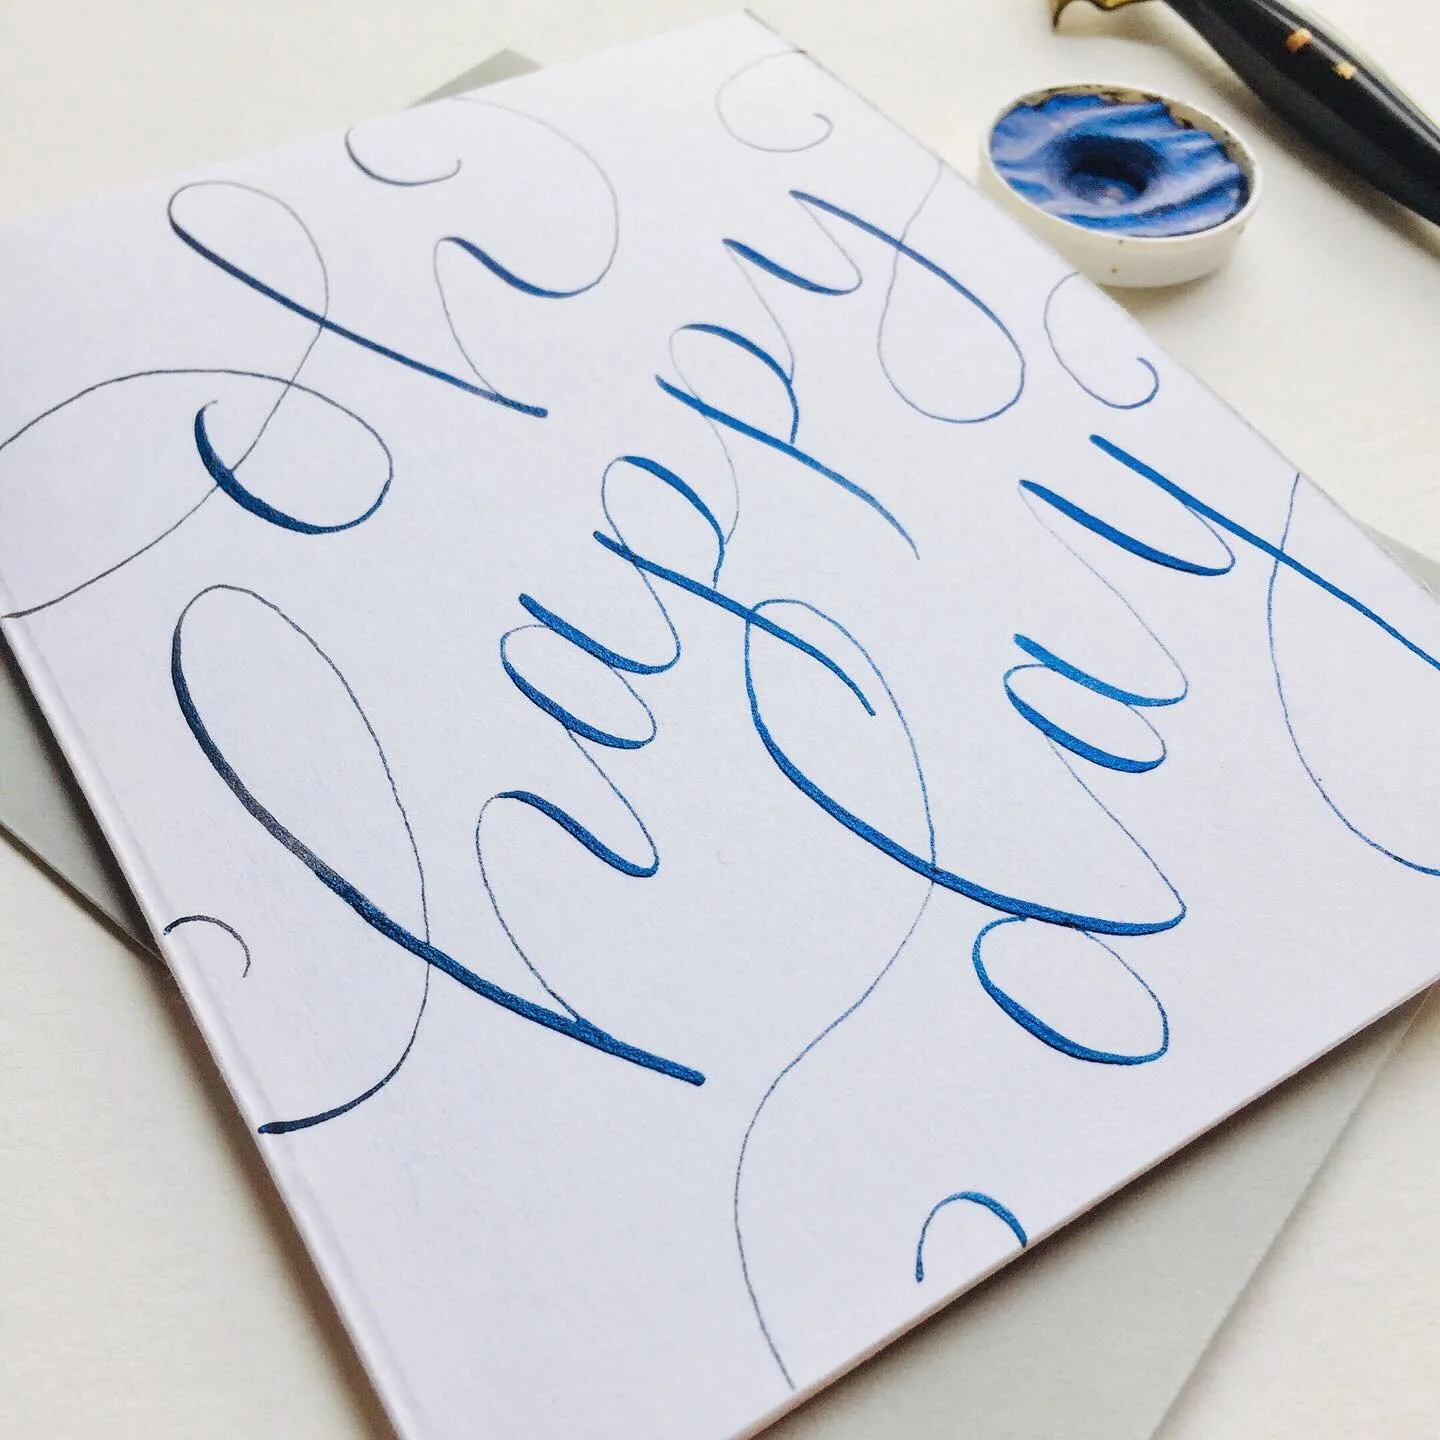 oh
happy
day